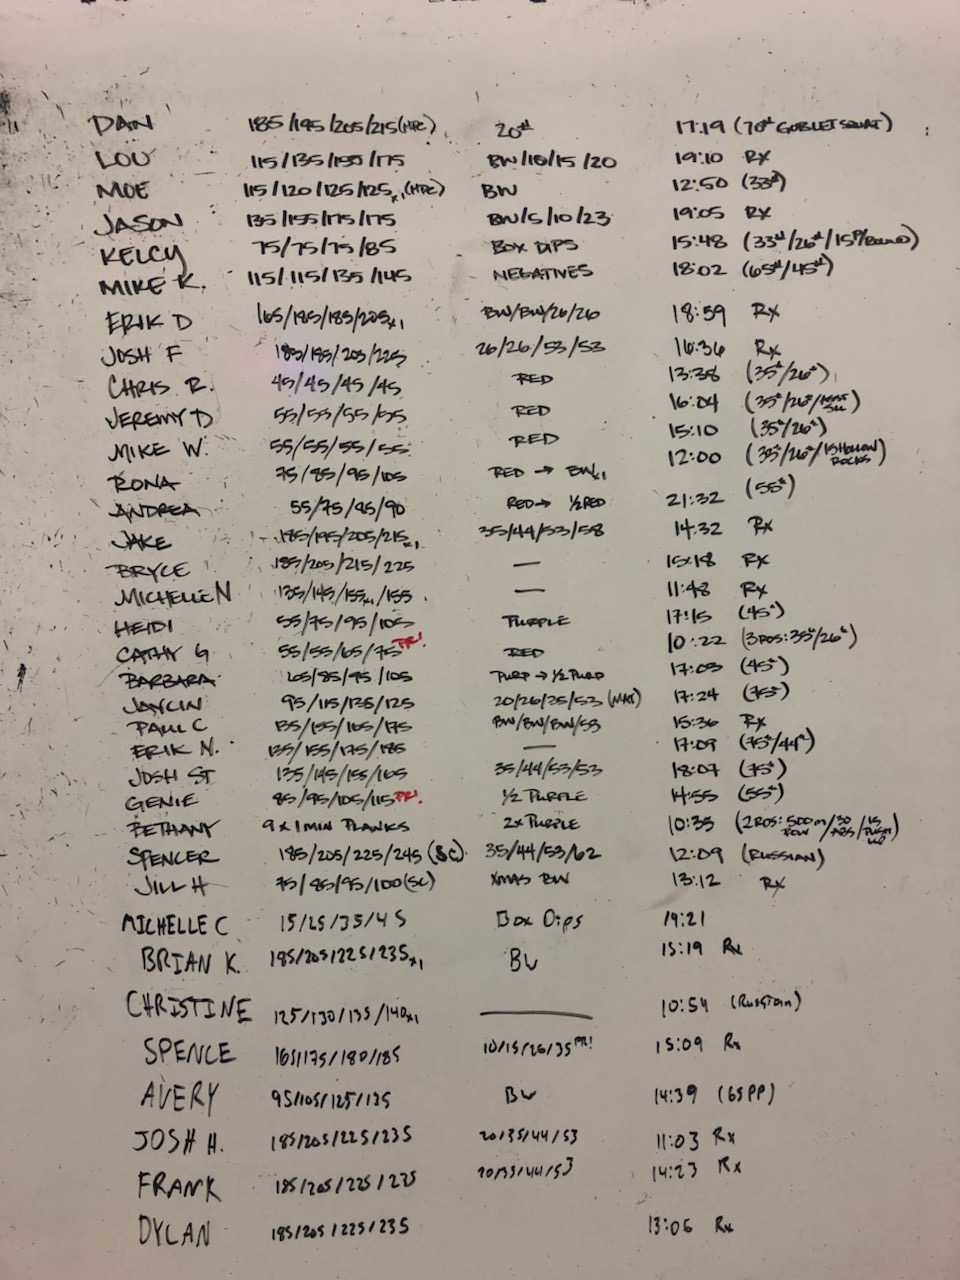 DAN 185/195/205/215(HPC) 20# 17:19 (70# GOBLET SQUAT)
LOU 115/135/155/175 BW/10/15/20 19:10 RX
MOE 115/120/125/125x1(HPC) BW 12:50 (33#)
JASON 135/155/175/175 BW/5/10/23 19:05 RX
KELCY 75/75/75/85 BOX DIPS 15:48 (33#/26#/15#/BAND)
MIKE K. 115/115/135/145 NEGATIVES 18:02 (65#/45#)
ERIK D 165/185/185/205x1 BW/BW/26/26 18:59 Rx
JOSH F 185/195/205/225 26/26/53/53 16:36 Rx
CHRIS R. 45/45/45/45 RED 13:38 (35#/26#)
JEREMY D 55/55/55/55 RED 16:04 (35#/26#/
MIKE W. 55/55/55/55 RED 15:10 (35#/26#)
RONA 75/85/95/105 RED → BWx1 12:00 (35#/26#/15 HOLLOW ROCKS)
ANDREA 55/75/85/90 RED → 1/2 RED 21:32 (55#)
JAKE 185/195/205/215x1 35/44/53/58 14:32 Rx
BRYCE 185/205/215/225 — 15:18 Rx
MICHELLE N 135/145/155x1/155 — 11:48 Rx
HEIDI 55/75/95/105 PURPLE 17:15 (45#)
CATHY G 55/55/65/75 PR! RED 10:22 (3 RDS: 35#/26#)
BARBARA 65/85/95/105 PURP → 1/2 PURP 17:03 (45#)
JAYCIN 95/115/135/125 20/26/35/53 (MAT) 17:24 (75#)
PAUL C 135/155/165/175 BW/BW/BW/53 15:36 Rx
ERIK N. 135/155/175/185 — 17:09 (75#/44#)
JOSH ST 135/145/155/165 35/44/53/53 18:07 (75#)
GENIE 85/95/105/115 PR! 1/2 PURPLE 14:55 (55#)
BETHANY 9 x 1 MIN PLANKS 2x PURPLE 10:35 (2 RDS: 500m ROW/30 ABS/15 PUSH UP)
SPENCER 185/205/225/245 (SC) 35/44/53/62 12:09 (RUSSIAN)
JILL H 75/85/95/100(SC) XMAS BW 13:12 Rx
MICHELLE C 15/25/35/45 Box Dips 19:21
BRIAN K. 185/205/225/235x1 BW 15:19 Rx
CHRISTINE 125/130/135/140x1 — 10:54 (Russian)
SPENCE 165/175/180/185 10/15/26/35 PR! 15:09 Rx
AVERY 95/105/125/135 BW 14:39 (65 PP)
JOSH H. 185/205/225/235 20/35/44/53 11:03 Rx
FRANK 185/205/225/225 20/35/44/53 14:23 Rx
DYLAN 185/205/225/235 13:06 Rx